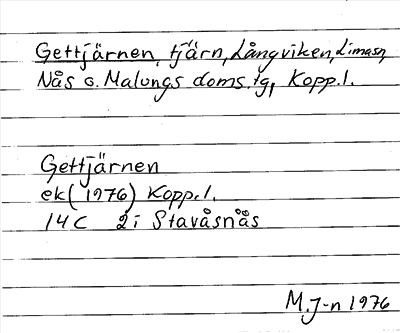 Gettjärnen, tjärn, Långviken, Limasn,
Nås o. Malungs doms.tg, Kopp.l.
Gettjärnen
ek (1976) Kopp.l.
14C 2i Stavåsnäs
M.J-n 1976